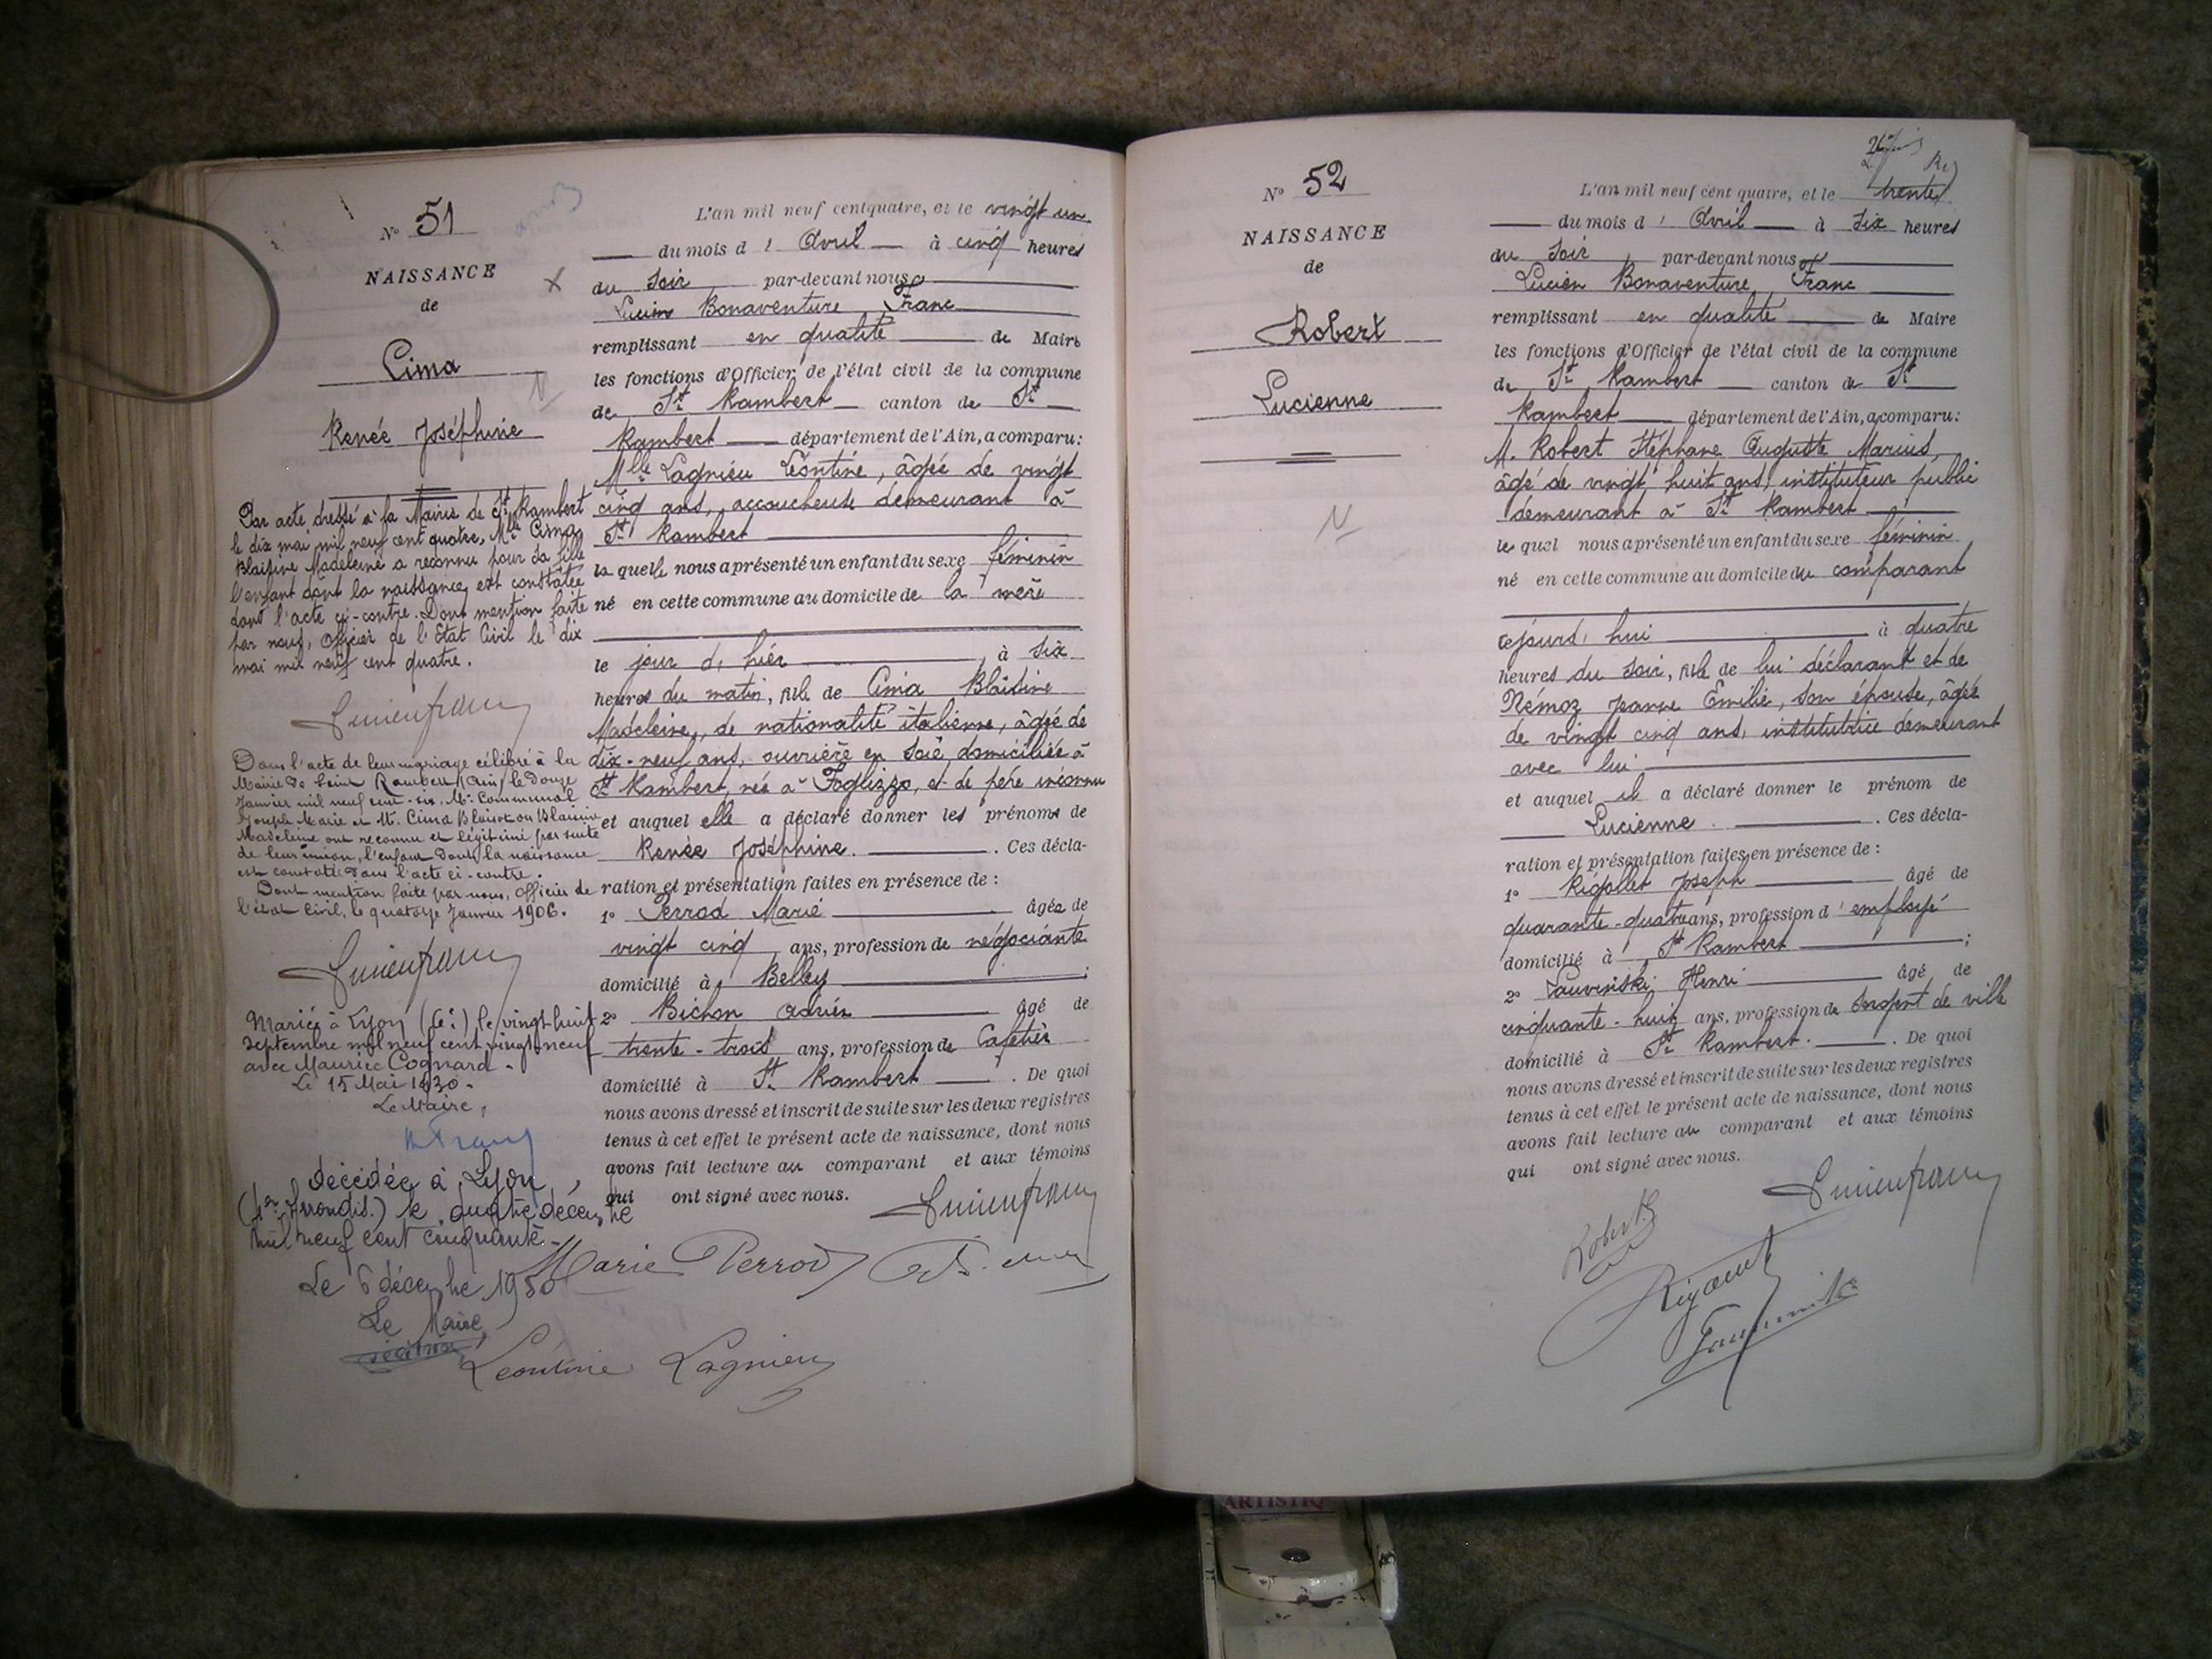 N° 51
NAISSANCE
de
Cima
Renée Joséphine
Par acte dressé à la Mairie de St Rambert
le dix mai mil neuf cent quatre, Mlle Cima
Blaisine Madeleine a reconnu pour sa fille
l'enfant dont la naissance est constatée
dans l'acte ci-contre. Dont mention faite
par nous, Officier de l'Etat Civil le dix
mai mil neuf cent quatre.
Lucien franc
Dans l'acte de leur mariage célébré à la
Mairie de Saint Rambert (Ain) le douze
Janvier mil neuf cent six, Mr Communal
Joseph Marie et Cima Blaisine
Madeleine ont reconnu et légitimé par suite
de leur union, l'enfant dont la naissance
est constatée dans l'acte ci-contre.
Dont mention faite par nous, Officier de
l'état Civil, le quatorze Janvier 1906.
Lucien franc
Mariée à Lyon (6e) le vingt huit
septembre mil neuf cent vingt neuf
avec Maurice Cognard.
Le 15 Mai 1930.
Le Maire,
décédée à Lyon,
(1er Arrondis.) le quatre décembre
mil neuf cent cinquante.
Le 6 décembre 1950
Le Maire,
L'an mil neuf cent quatre, et le vingt un
du mois d' Avril à cinq heures
du soir par-devant nous
Lucien Bonaventure Franc
remplissant en qualité de Maire
les fonctions d'Officier de l'état civil de la commune
de St Rambert canton de St
Rambert département de l'Ain, a comparu:
Mlle Lagnieu Léontine, âgée de vingt
cinq ans, accoucheuse demeurant à
St Rambert
la quelle nous a présenté un enfant du sexe féminin
né en cette commune au domicile de la mère
le jour d'hier à six
heures du matin, fille de Cima Blaisine
Madeleine, de nationalité italienne, âgée de
dix-neuf ans, ouvrière en soie, domiciliée à
St Rambert, née à Foglizzo, et de père inconnu
et auquel elle a déclaré donner les prénoms de
Renée Joséphine. Ces décla-
ration et présentation faites en présence de :
1° Perrod Marie âgée de
vingt cinq ans, profession de négociante
domicilié à Belley ;
2° Bichon Adrien âgé de
trente-trois ans, profession de Cafetier
domicilié à St Rambert. De quoi
nous avons dressé et inscrit de suite sur les deux registres
tenus à cet effet le présent acte de naissance, dont nous
avons fait lecture au comparant et aux témoins
qui ont signé avec nous.
Lucien franc
Marie Perrod
Léontine Lagnieu
N° 52
NAISSANCE
de
Robert
Lucienne
L'an mil neuf cent quatre, et le trente
du mois d' Avril à six heures
du soir par-devant nous
Lucien Bonaventure Franc
remplissant en qualité de Maire
les fonctions d'Officier de l'état civil de la commune
de St Rambert canton de St
Rambert département de l'Ain, a comparu:
M. Robert Stéphane Auguste Marius,
âgé de vingt huit ans, instituteur public
demeurant à St Rambert
le quel nous a présenté un enfant du sexe féminin
né en cette commune au domicile du comparant
cejourd'hui à quatre
heures du soir, fille de lui déclarant et de
Némoz Jeanne Emilie, son épouse, âgée
de vingt cinq ans, institutrice demeurant
avec lui
et auquel il a déclaré donner le prénom de
Lucienne. Ces décla-
ration et présentation faites en présence de :
1° Rigollet Joseph âgé de
quarante-quatre ans, profession d' employé
domicilié à St Rambert ;
2° Henri âgé de
cinquante-huit ans, profession de sergent de ville
domicilié à St Rambert. De quoi
nous avons dressé et inscrit de suite sur les deux registres
tenus à cet effet le présent acte de naissance, dont nous
avons fait lecture au comparant et aux témoins
qui ont signé avec nous.
Lucien franc
Robert S
ARTISTIQ